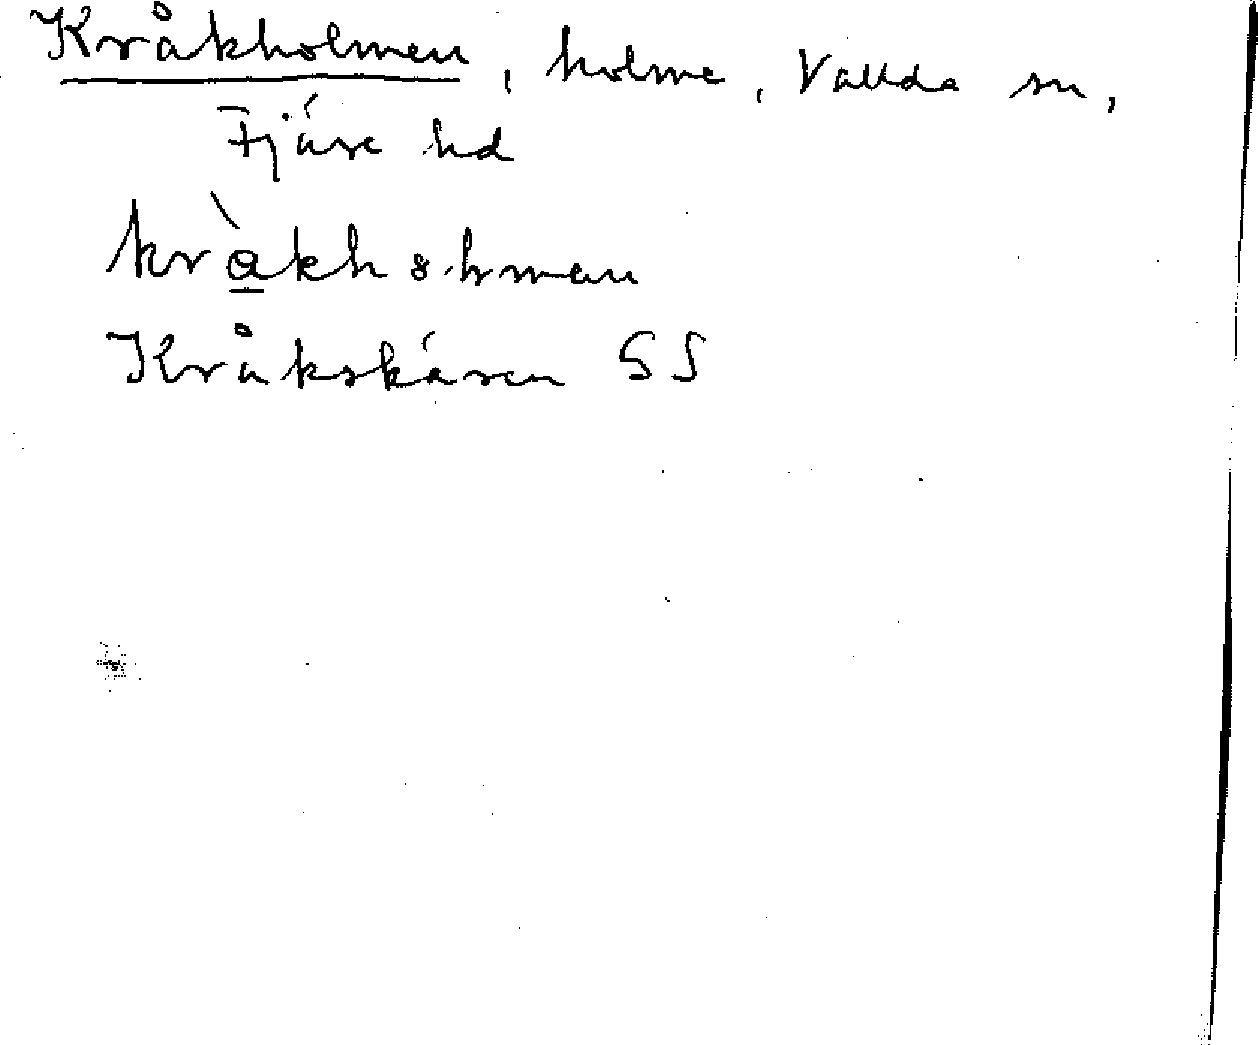 Kråkholmen, holme, Vallda sn,
Fjäre hd
Kråkskären SS